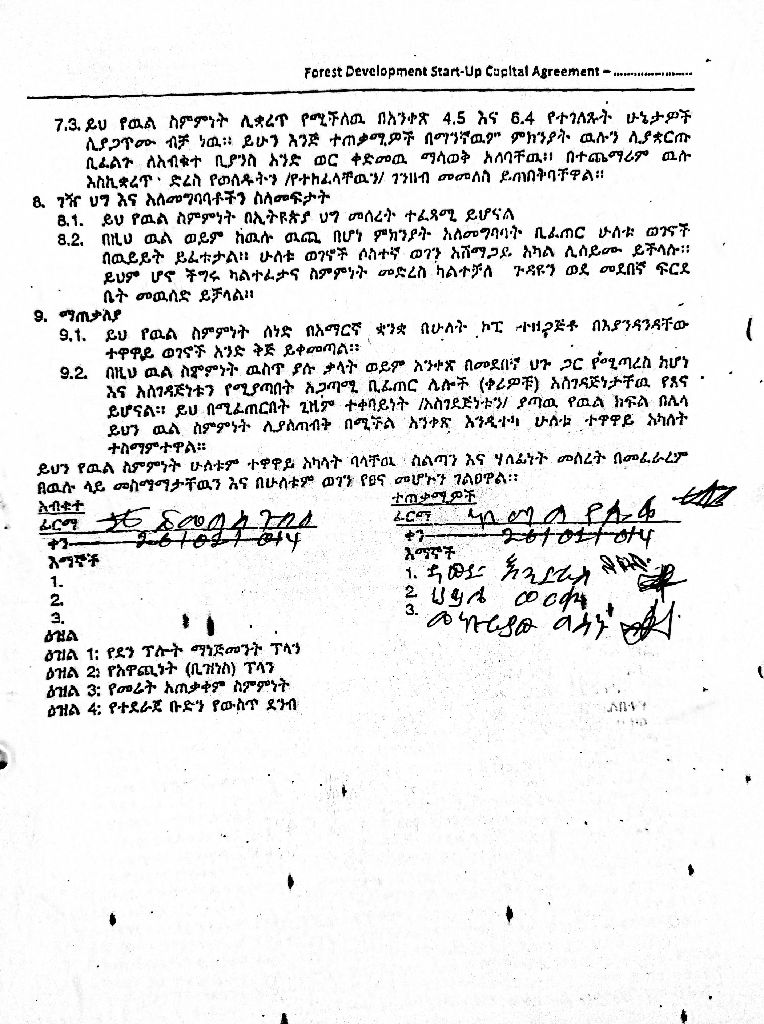 Forest Development Start-Up Capital Agreement – ......................
7.3. ይህ የዉል ስምምነት ሊቋረጥ የሚችለዉ በአንቀጽ 4.5 እና 6.4 የተገለጹት ሁኔታዎች
ሲያጋጥሙ ብቻ ነዉ፡፡ ይሁን እንጅ ተጠቃሚዎች በማንኛዉም ምክንያት ዉሉን ሊያቋርጡ
ቢፈልጉ ለአብቁተ ቢያንስ አንድ ወር ቀድመዉ ማሳወቅ አለባቸዉ፡፡ በተጨማሪም ዉሉ
እስኪቋረጥ ድረስ የወሰዱትን /የተከፈላቸዉን/ ገንዘብ መመለስ ይጠበቅባቸዋል፡፡
8. ገዥ ህግ እና አለመግባባቶችን ስለመፍታት
8.1. ይህ የዉል ስምምነት በኢትዩጵያ ህግ መሰረት ተፈጻሚ ይሆናል
8.2. በዚህ ዉል ወይም ከዉሉ ዉጪ በሆነ ምክንያት አለመግባባት ቢፈጠር ሁለቱ ወገኖች
በዉይይት ይፈቱታል፡፡ ሁለቱ ወገኖች ሶስተኛ ወገን አሸማጋይ አካል ሊሰይሙ ይችላሉ፡፡
ይህም ሆኖ ችግሩ ካልተፈታና ስምምነት መድረስ ካልተቻለ ጉዳዩን ወደ መደበኛ ፍርድ
ቤት መዉሰድ ይቻላል፡፡
9. ማጠቃለያ
9.1. ይህ የዉል ስምምነት ሰነድ በአማርኛ ቋንቋ በሁለት ኮፒ ተዘጋጅቶ በእያንዳንዳቸው
ተዋዋይ ወገኖች አንድ ቅጅ ይቀመጣል፡፡
9.2. በዚህ ዉል ስምምነት ዉስጥ ያሉ ቃላት ወይም አንቀጽ በመደበኛ ህጉ ጋር የሚጣረስ ከሆነ
እና አስገዳጅነቱን የሚያጣበት አጋጣሚ ቢፈጠር ሌሎች (ቀሪዎቹ) አስገዳጅነታቸዉ የጸና
ይሆናል፡፡ ይህ በሚፈጠርበት ጊዜም ተቀባይነት /አስገደጅነቱን/ ያጣዉ የዉል ክፍል በሌላ
ይህን ዉል ስምምነት ሊያስጠብቅ በሚችል አንቀጽ እንዲተካ ሁለቱ ተዋዋይ አካላት
ተስማምተዋል፡፡
ይህን የዉል ስምምነት ሁለቱም ተዋዋይ አካላት ባላቸዉ ስልጣን እና ሃላፊነት መሰረት በመፈራረም
በዉሉ ላይ መስማማታቸዉን እና በሁለቱም ወገን የፀና መሆኑን ገልፀዋል፡፡
አብቁተ
ፊርማ
ቀን 26/02/014
እማኞች
1.
2.
3.
ተጠቃሚዎች
ፊርማ
ቀን 26/02/014
እማኞች
1.
2.
3.
ዕዝል
ዕዝል 1: የደን ፕሎት ማነጅመንት ፕላን
ዕዝል 2: የአዋጪነት (ቢዝነስ) ፕላን
ዕዝል 3: የመሬት አጠቃቀም ስምምነት
ዕዝል 4: የተደራጀ ቡድን የውስጥ ደንብ